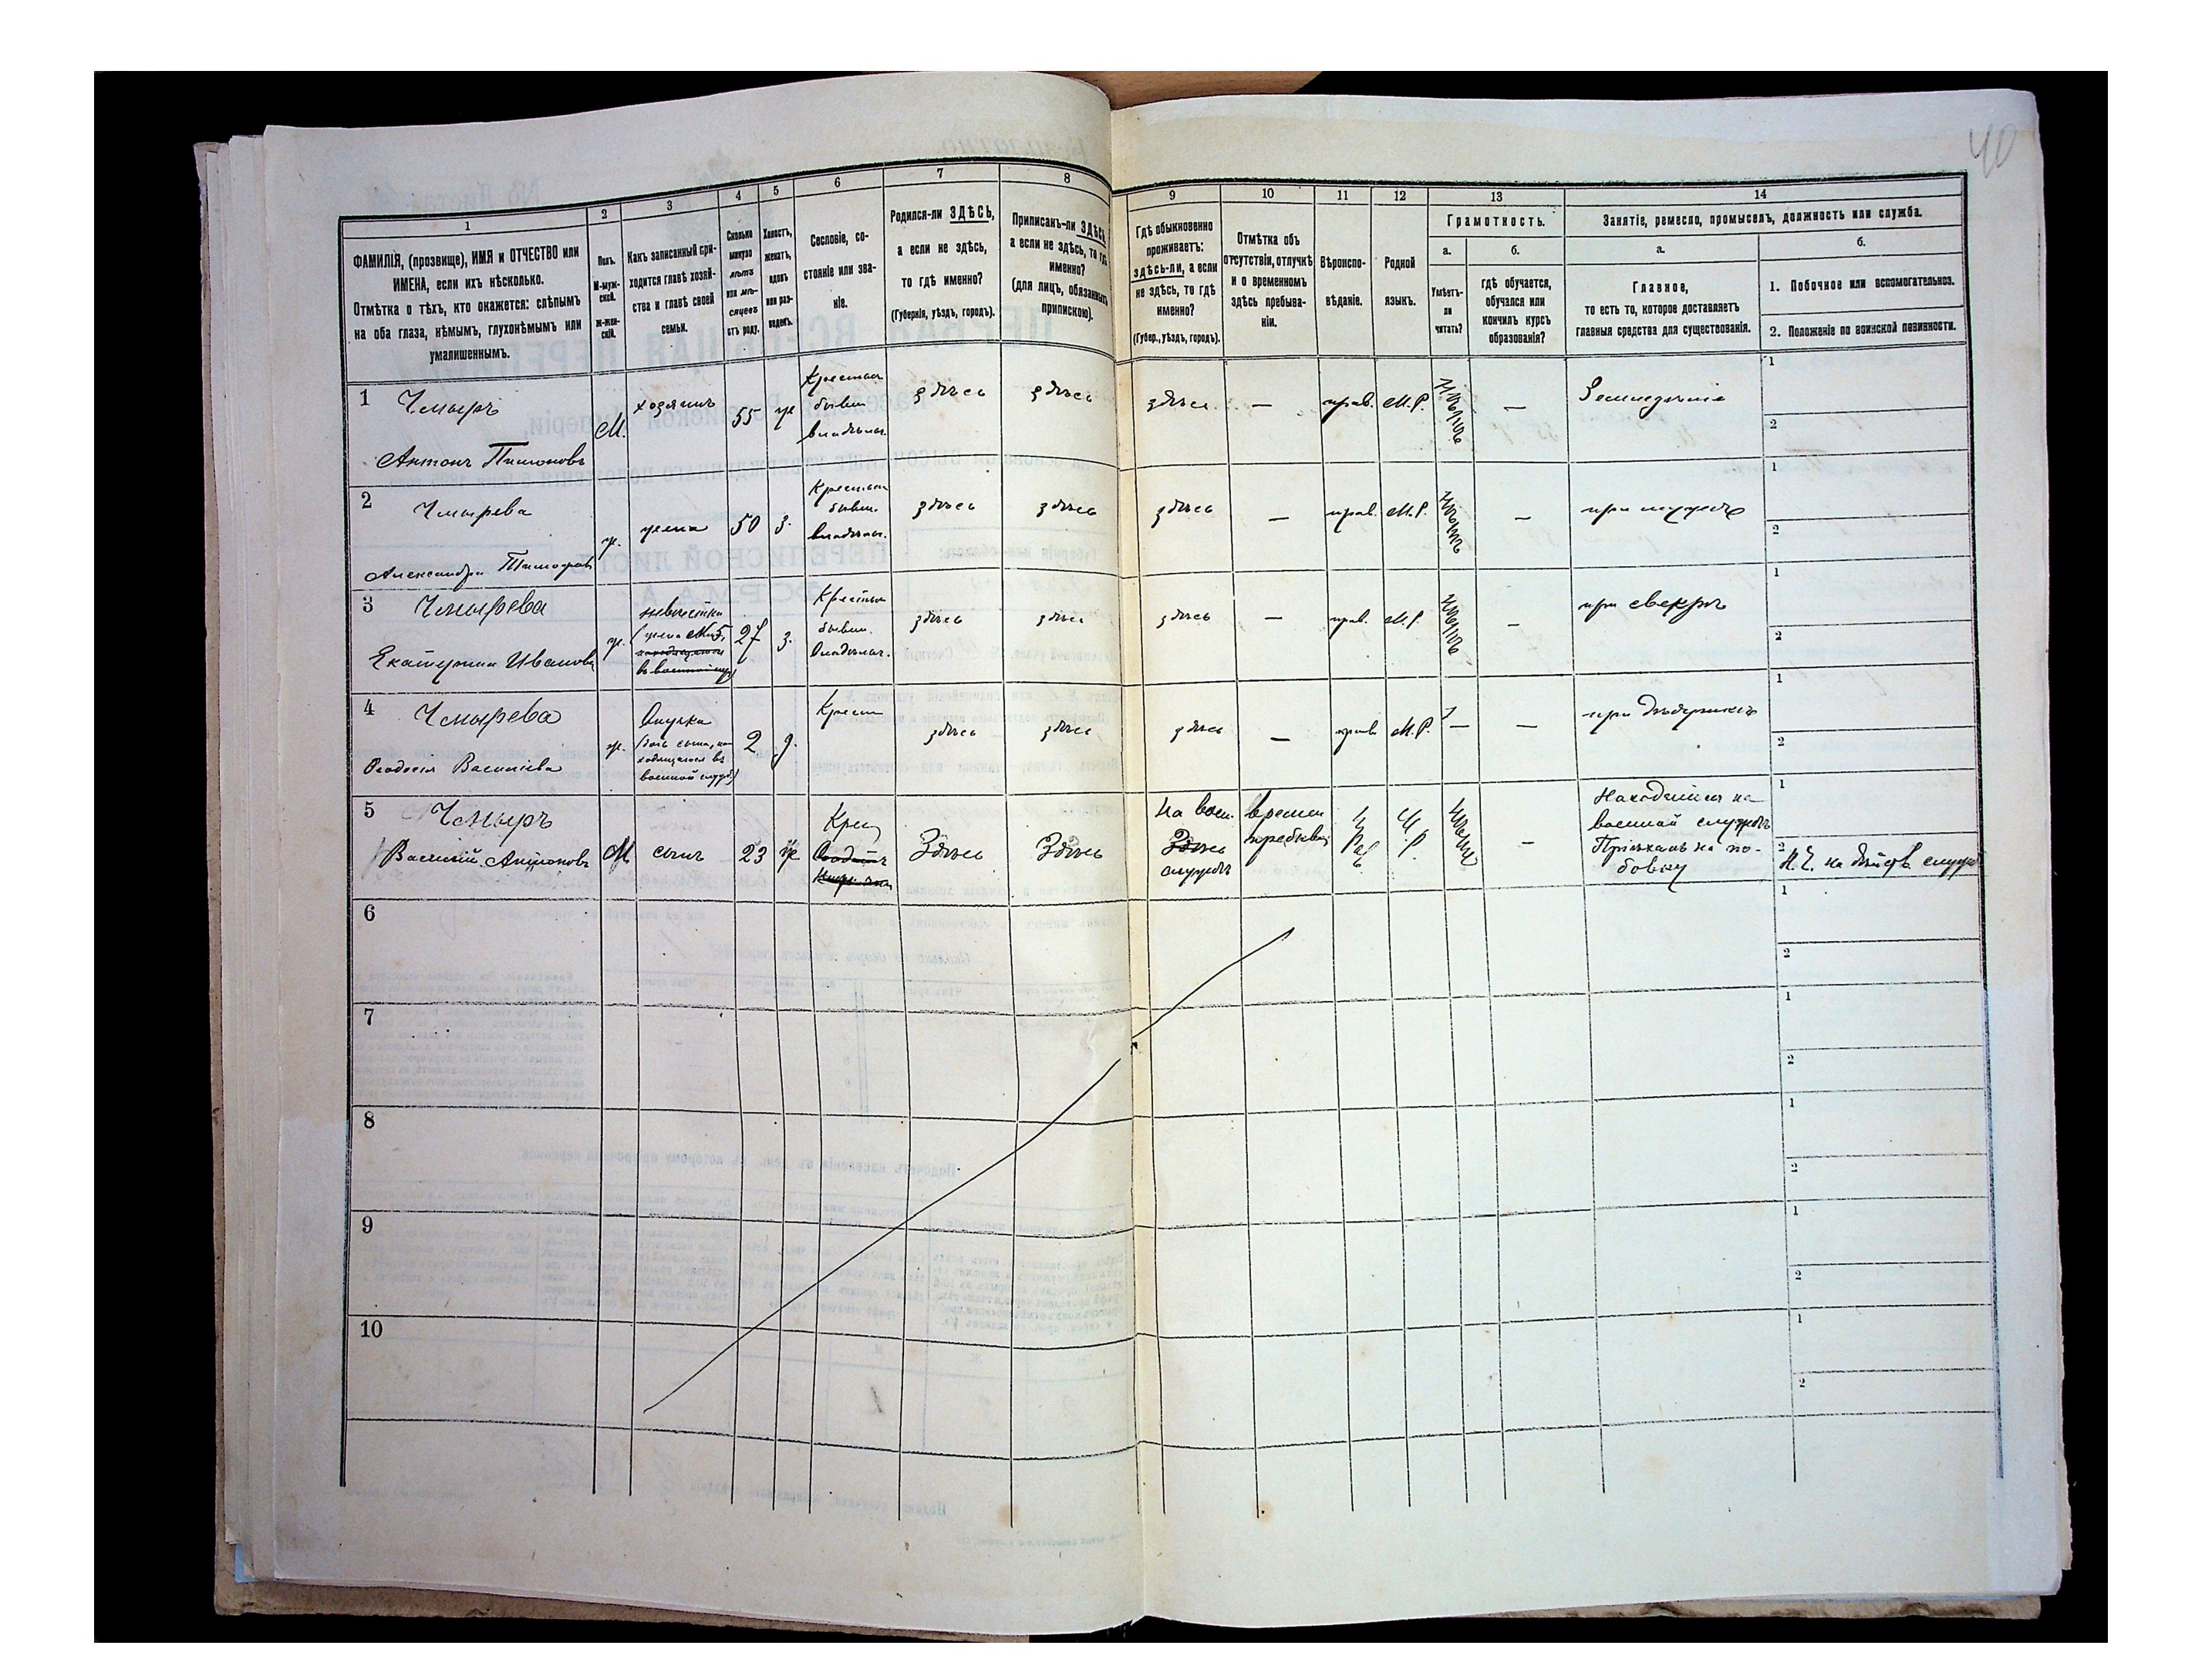 40
1
ФАМИЛІЯ, (прозвище), ИМЯ и ОТЧЕСТВО или
ИМЕНА, если ихъ нѣсколько.
Отмѣтка о тѣхъ, кто окажется: слѣпымъ
на оба глаза, нѣмымъ, глухонѣмымъ или
умалишеннымъ.
2
Полъ.
М-муж-
ской.
Ж-жен-
скій.
3
Какъ записанный при-
ходится главѣ хозяй-
ства и главѣ своей
семьи.
4
Сколько
минуло
лѣтъ
или мѣ-
сяцевъ
отъ роду.
5
Холостъ,
женатъ,
вдовъ
или раз-
веденъ.
6
Сословіе, со-
стояніе или зва-
ніе.
7
Родился-ли ЗДѢСЬ,
а если не здѣсь,
то гдѣ именно?
(Губернія, уѣздъ, городъ).
8
Приписанъ-ли ЗДѢСЬ
а если не здѣсь, то гдѣ
именно?
(для лицъ, обязанныхъ
припискою).
9
Гдѣ обыкновенно
проживаетъ:
здѣсь-ли, а если
не здѣсь, то гдѣ
именно?
(Губер., уѣздъ, городъ).
10
Отмѣтка объ
отсутствіи, отлучкѣ
и о временномъ
здѣсь пребыва-
ніи.
11
Вѣроиспо-
вѣданіе.
12
Родной
языкъ.
13
Грамотность.
а.
Умѣетъ-
ли
читать?
б.
гдѣ обучается,
обучался или
кончилъ курсъ
образованія?
14
Занятіе, ремесло, промыселъ, должность или служба.
а.
Главное,
то есть то, которое доставляетъ
главныя средства для существованія.
б.
1. Побочное или вспомогательное.
2. Положеніе по воинской повинности.
1 Чмырь
Антонъ Пимоновъ
М.
хозяинъ
55
ж
Крестьян
бывш.
владѣльч.
здѣсь
здѣсь
здѣсь
—
прав.
М.Р.
—
Земледѣліе
1
2
2 Чмырева
Александра Тимофеев
ж.
жена
50
з.
Крестьян
бывш.
владѣльч.
здѣсь
здѣсь
здѣсь
—
прав.
М.Р.
—
при мужѣ
1
2
3 Чмырева
Екатерина Иванова
ж.
невѣстка
(жена №5,
27
з.
Крестьян
бывш.
владѣльч.
здѣсь
здѣсь
здѣсь
—
прав.
М.Р.
—
при свекрѣ
1
2
4 Чмырева
Феодосія Васильева
ж.
Внучка
(дочь сына, на-
ходящагося въ
военной службѣ)
2
д.
Крест
здѣсь
здѣсь
здѣсь
—
прав
М.Р.
—
—
при дѣдушкѣ
1
2
5 Чмырь
Василій Антоновъ
М
сынъ
23
ж
Крес
Здѣсь
Здѣсь
На воен.
Здѣсь
службѣ
времен
пребыван
Прав
М.Р.
—
Находится на
военной службѣ
Пріѣхалъ на по-
бовку
1
2 Н.Ч. на дѣйств. служб
6
1
2
7
1
2
8
1
2
9
1
2
10
1
2